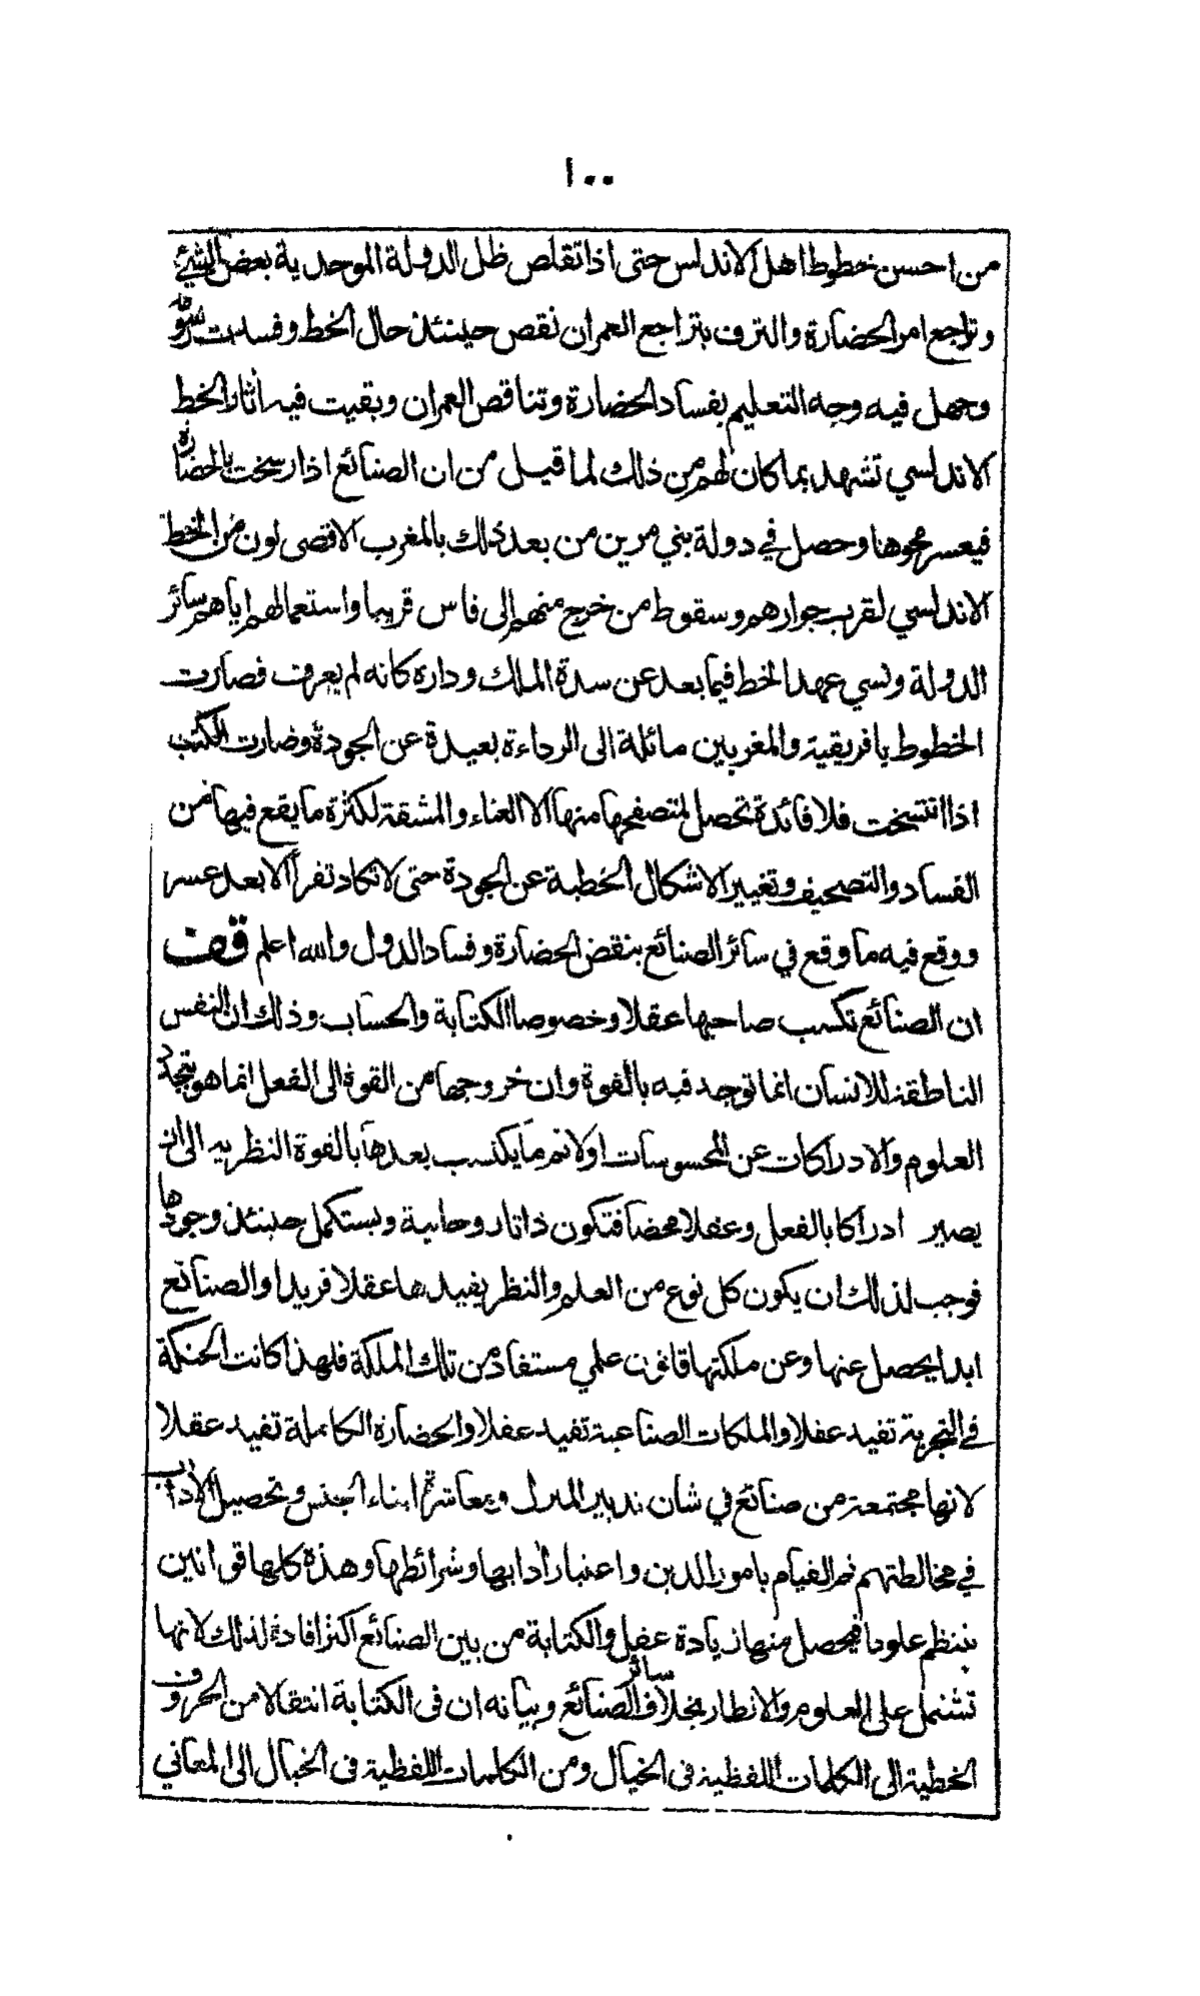 ١٠٠
من احسن خطوط اهل الاندلس حتى اذا تقلص ظل الدولة الموحدية بعض الشئ
وتراجع امر الحضارة والترف بتراجع العمران نقص حينئذ حال الخط وفسدت رسومه
وجهل فيه وجه التعليم بفساد الحضارة وتناقص العمران وبقيت فيه اثار الخط
الاندلسي تشهد بما كان لهم من ذلك لما قيل من ان الصنائع اذا رسخت بالحضارة
فيعسر محوها وحصل في دولة بني مرين من بعد ذلك بالمغرب الاقصى لون من الخط
الاندلسي لقرب جوارهم وسقوط من خرج منهم الى فاس قريبا واستعمالهم اياهم سائر
الدولة ونسي عهد الخط فيما بعد عن سدة الملك وداره كانه لم يعرف فصارت
الخطوط بافريقية والمغربين مائلة الى الرداءة بعيدة عن الجودة وصارت الكتب
اذا انتسخت فلا فائدة تحصل لمتصفحها منها الا العناء والمشقة لكثرة ما يقع فيها من
الفساد والتصحيف وتغيير الاشكال الخطية عن الجودة حتى لا تكاد تقرأ الا بعد عسر
ووقع فيه ما وقع في سائر الصنائع بنقض الحضارة وفساد الدول والله اعلم قف
ان الصنائع تكسب صاحبها عقلا وخصوصا الكتابة والحساب وذلك ان النفس
الناطقة للانسان انما توجد فيه بالقوة وان خروجها من القوة الى الفعل انما هو بتجدد
العلوم والادراكات عن المحسوسات اولا ثم ما يكتسب بعدها بالقوة النظرية الى ان
يصير ادراكا بالفعل وعقلا محضا فتكون ذاتا روحانية ويستكمل حينئذ وجودها
فوجب لذلك ان يكون كل نوع من العلم والنظر يفيدها عقلا فريدا والصنائع
ابدا يحصل عنها وعن ملكتها قانون علمي مستفاد من تلك الملكة فلهذا كانت الحنكة
في التجربة تفيد عقلا والملكات الصناعية تفيد عقلا والحضارة الكاملة تفيد عقلا
لانها مجتمعة من صنائع في شان تدبير المنزل ومعاشرة ابناء الجنس وتحصيل الاداب
في مخالطتهم ثم القيام بامور الدين واعتبار أدابها وشرائطها وهذه كلها قوانين
تنتظم علوما فيحصل منها زيادة عقل والكتابة من بين الصنائع اكثر افادة لذلك لانها
تشتمل على العلوم والانظار بخلاف سائر الصنائع وبيانه ان فى الكتابة انتقالا من الحروف
الخطية الى الكلمات اللفظية فى الخيال ومن الكلمات اللفظية فى الخيال الى المعاني